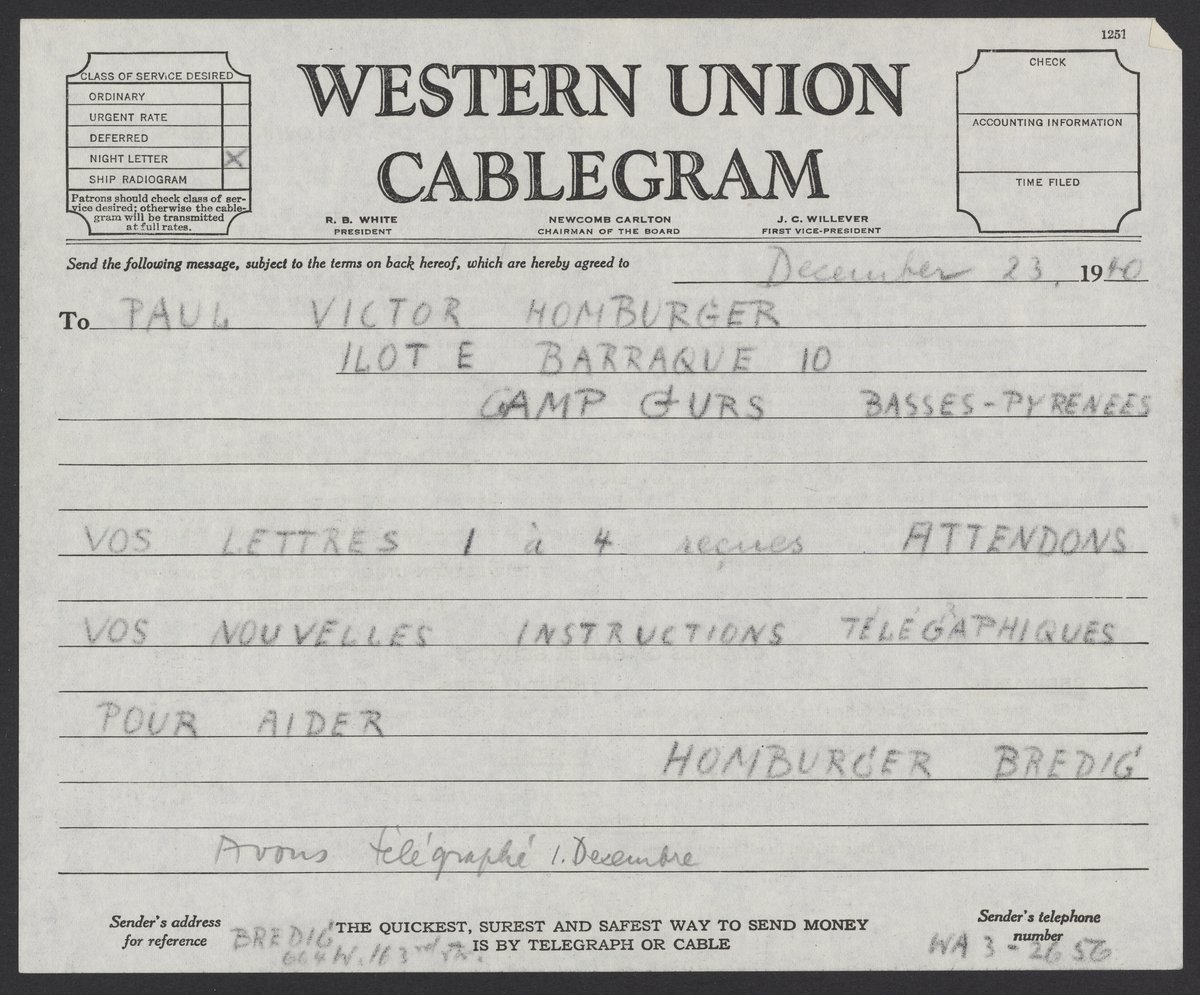 1251
CLASS OF SERVICE DESIRED
ORDINARY
URGENT RATE
DEFERRED
NIGHT LETTER X
SHIP RADIOGRAM
Patrons should check class of ser-
vice desired; otherwise the cable-
gram will be transmitted
at full rates.
WESTERN UNION
CABLEGRAM
R. B. WHITE
PRESIDENT
NEWCOMB CARLTON
CHAIRMAN OF THE BOARD
J. C. WILLEVER
FIRST VICE-PRESIDENT
CHECK
ACCOUNTING INFORMATION
TIME FILED
Send the following message, subject to the terms on back hereof, which are hereby agreed to
December 23, 1940
To PAUL VICTOR HOMBURGER
ILOT E BARRAQUE 10
CAMP GURS BASSES-PYRENEES
VOS LETTRES 1 à 4 reçues ATTENDONS
VOS NOUVELLES INSTRUCTIONS TÉLÉGRAPHIQUES
POUR AIDER
HOMBURGER BREDIG
Avons télégraphé 1. Decembre
Sender's address
for reference
BREDIG
604 W. 163rd St.
THE QUICKEST, SUREST AND SAFEST WAY TO SEND MONEY
IS BY TELEGRAPH OR CABLE
Sender's telephone
number
WA 3-2656